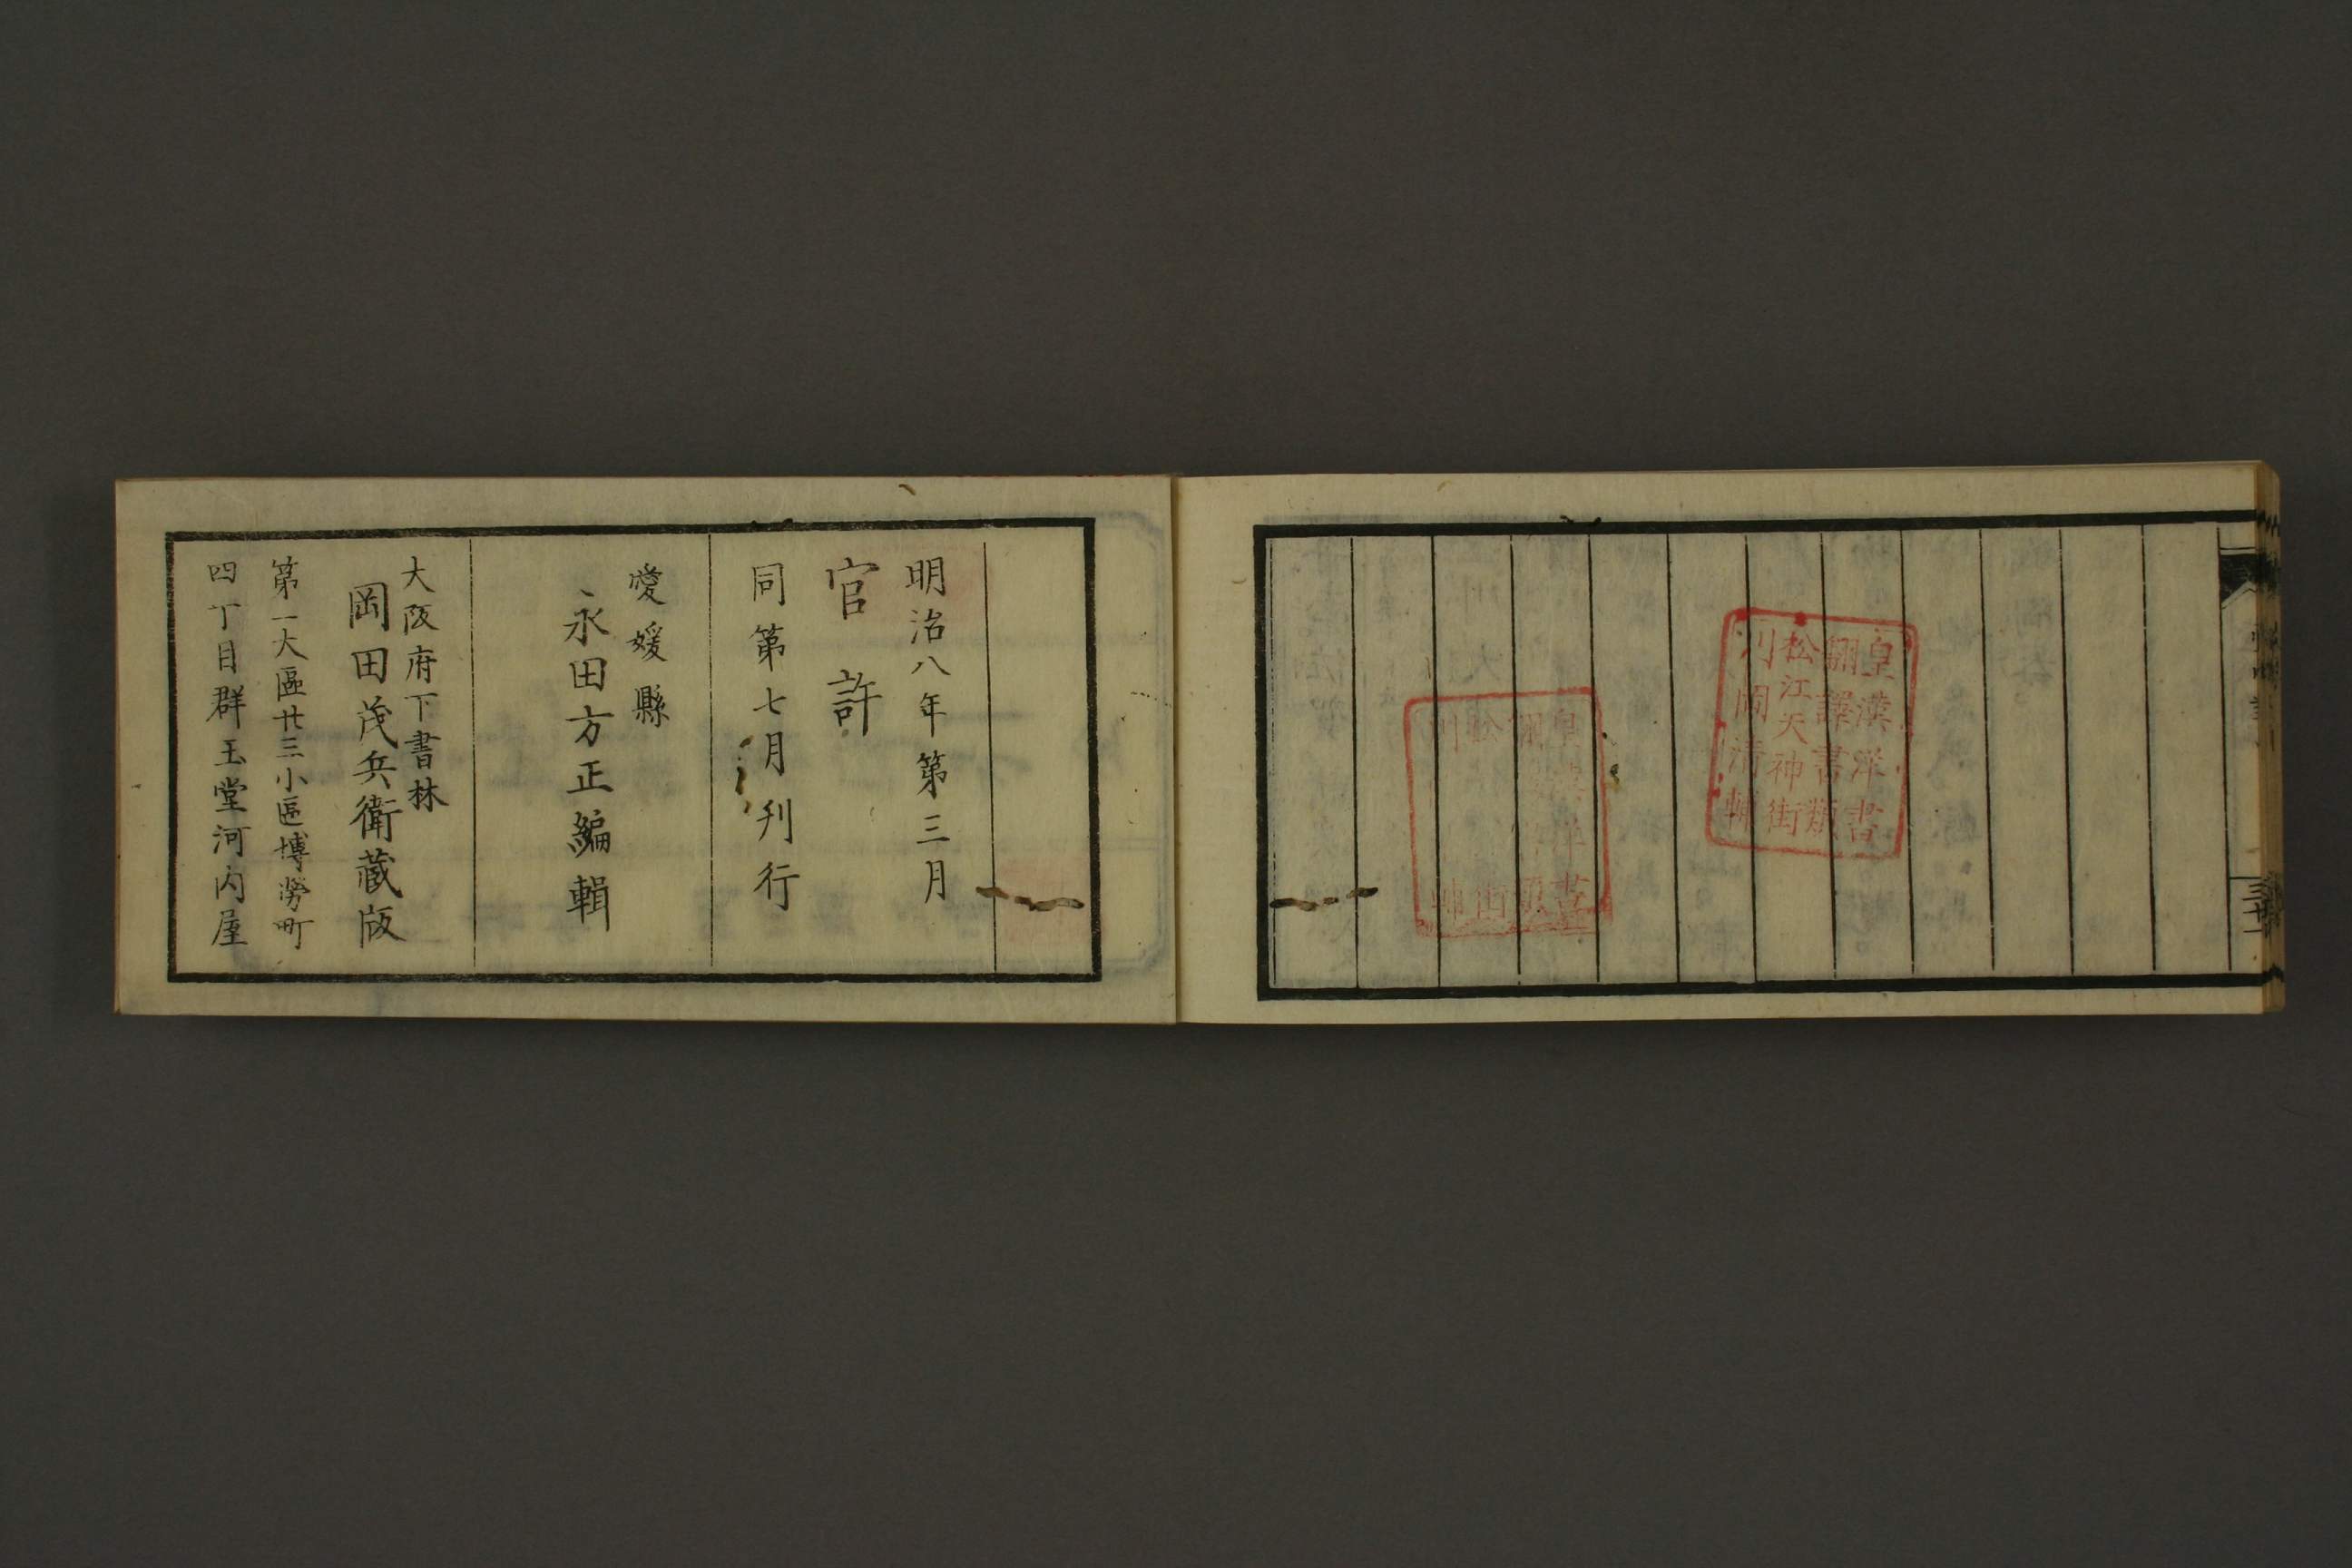 皇漢洋書
翻譯書類
松江天神街
川岡清助
皇漢洋書
明治八年第三月
官許
同第七月刋行
愛媛縣
永田方正編輯
大阪府下書林
岡田茂兵衛蔵版
第一大區廿三小區博勞町
四丁目群玉堂河内屋